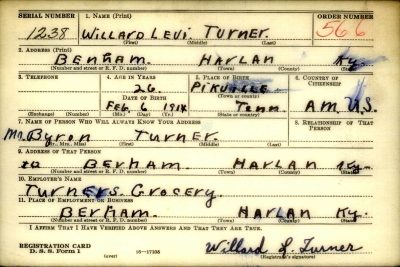 SERIAL NUMBER 1. NAME (Print) ORDER NUMBER
1238 WILLARD LEVI TURNER. 566
(First) (Middle) (Last)
2. ADDRESS (Print)
BENHAM HARLAN Ky.
(Number and street or R. F. D. number) (Town) (County) (State)
3. TELEPHONE 4. AGE IN YEARS 5. PLACE OF BIRTH 6. COUNTRY OF CITIZENSHIP
26. PIKVILLE
DATE OF BIRTH (Town or county)
Feb. 6 1914 Tenn. AM. U.S.
(Exchange) (Number) (Mo.) (Day) (Yr.) (State or country)
7. NAME OF PERSON WHO WILL ALWAYS KNOW YOUR ADDRESS 8. RELATIONSHIP OF THAT PERSON
Mr. Byron TURNER.
(Mr., Mrs., Miss) (First) (Middle) (Last)
9. ADDRESS OF THAT PERSON
BENHAM HARLAN Ky.
(Number and street or R. F. D. number) (Town) (County) (State)
10. EMPLOYER'S NAME
TURNERS. GROCERY
11. PLACE OF EMPLOYMENT OR BUSINESS
BENHAM. HARLAN Ky.
(Number and street or R. F. D. number) (Town) (County) (State)
I AFFIRM THAT I HAVE VERIFIED ABOVE ANSWERS AND THAT THEY ARE TRUE.
REGISTRATION CARD
D. S. S. Form 1 (over) 16—17105 Willard L. Turner
(Registrant's signature)